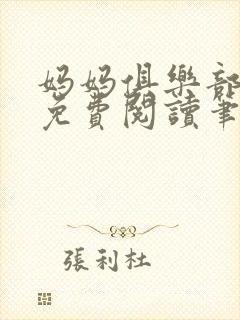 媽媽俱樂部
免費閱讀筆
張利杜